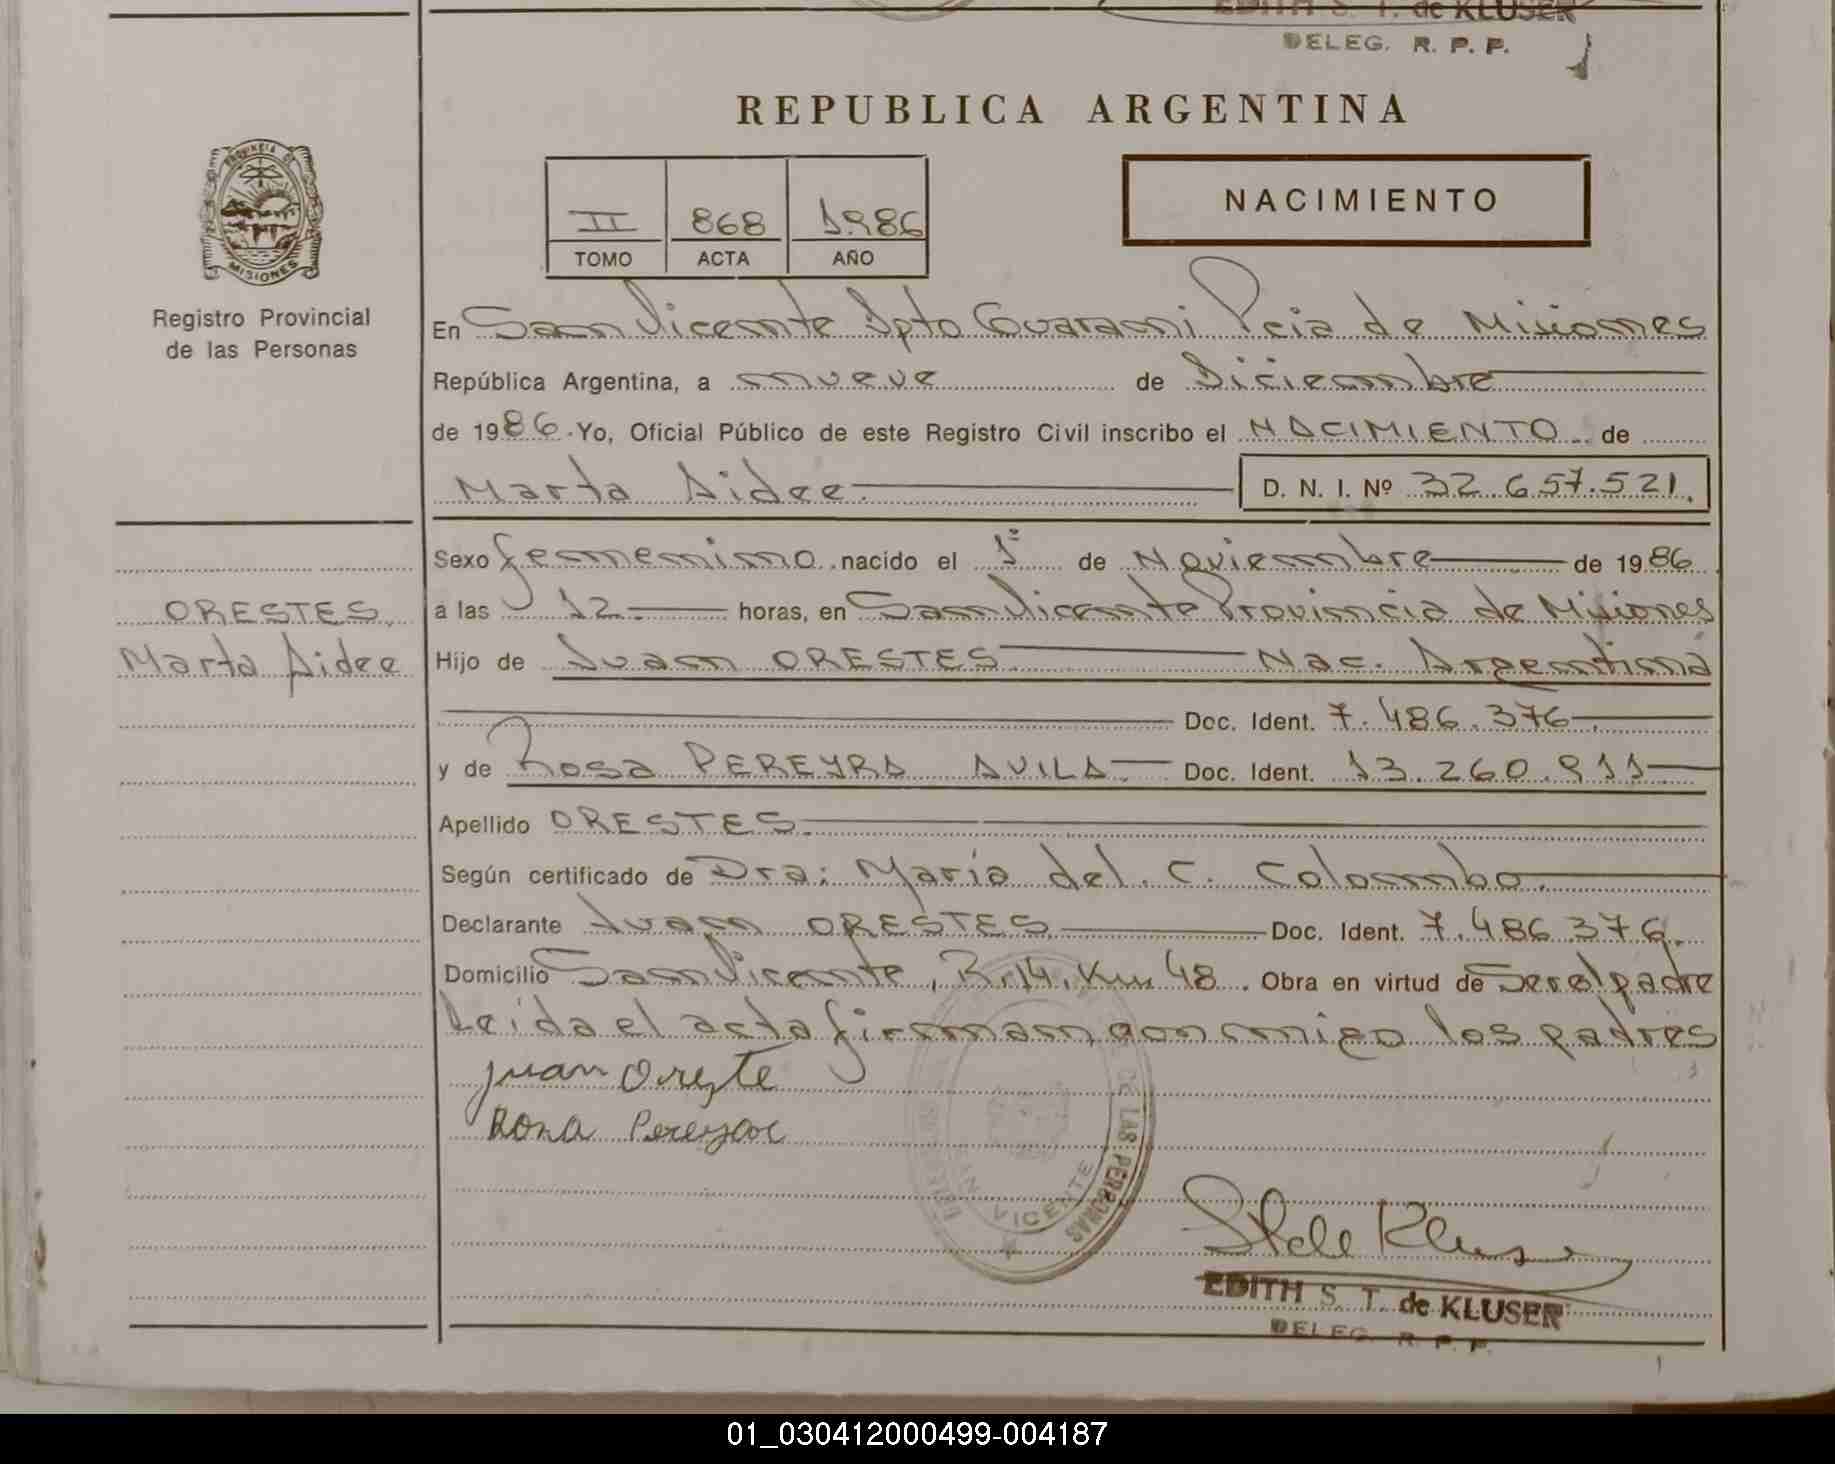 EDITH S. T. de KLUSER
DELEG. R. P. P.
REPUBLICA ARGENTINA
PROVINCIA DE
MISIONES
Registro Provincial
de las Personas
II 868 1986
TOMO ACTA AÑO
NACIMIENTO
En San Vicente Dpto Guarani Pcia de Misiones
República Argentina, a nueve de Diciembre
de 1986. Yo, Oficial Público de este Registro Civil inscribo el NACIMIENTO de
Marta Aidee D. N. I. Nº 32.657.521.
Sexo femenino nacido el 1º de Noviembre de 1986
a las 12 horas, en San Vicente Provincia de Misiones
Hijo de Juan ORESTES Nac. Argentina
Doc. Ident. 7.486.376
y de Rosa PEREYRA AVILA. Doc. Ident. 13.260.911
Apellido ORESTES.
Según certificado de Dra: María del. C. Colombo.
Declarante Juan ORESTES Doc. Ident. 7.486.376.
Domicilio San Vicente, R.14. Km 48. Obra en virtud de Ser el padre
Leida el acta firman conmigo los padres
Juan Oreste
Rosa Pereyra
ORESTES,
Marta Aidee
DE LAS PERSONAS
SAN VICENTE
EDITH S. T. de KLUSER
DELEG. R. P. P.
01_030412000499-004187